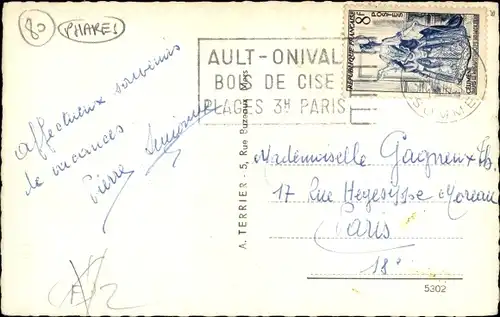 80
PHARES
AULT-ONIVAL
BOIS DE CISE
PLAGES 3H PARIS
8F
POSTES
REPUBLIQUE FRANÇAISE
SOMME
affectueux souvenirs
de vacances
Pierre
A. TERRIER - 5, Rue Buzeaux
Mademoiselle Gagneux
17 Rue Hegesippe Moreau
Paris
18e
5302